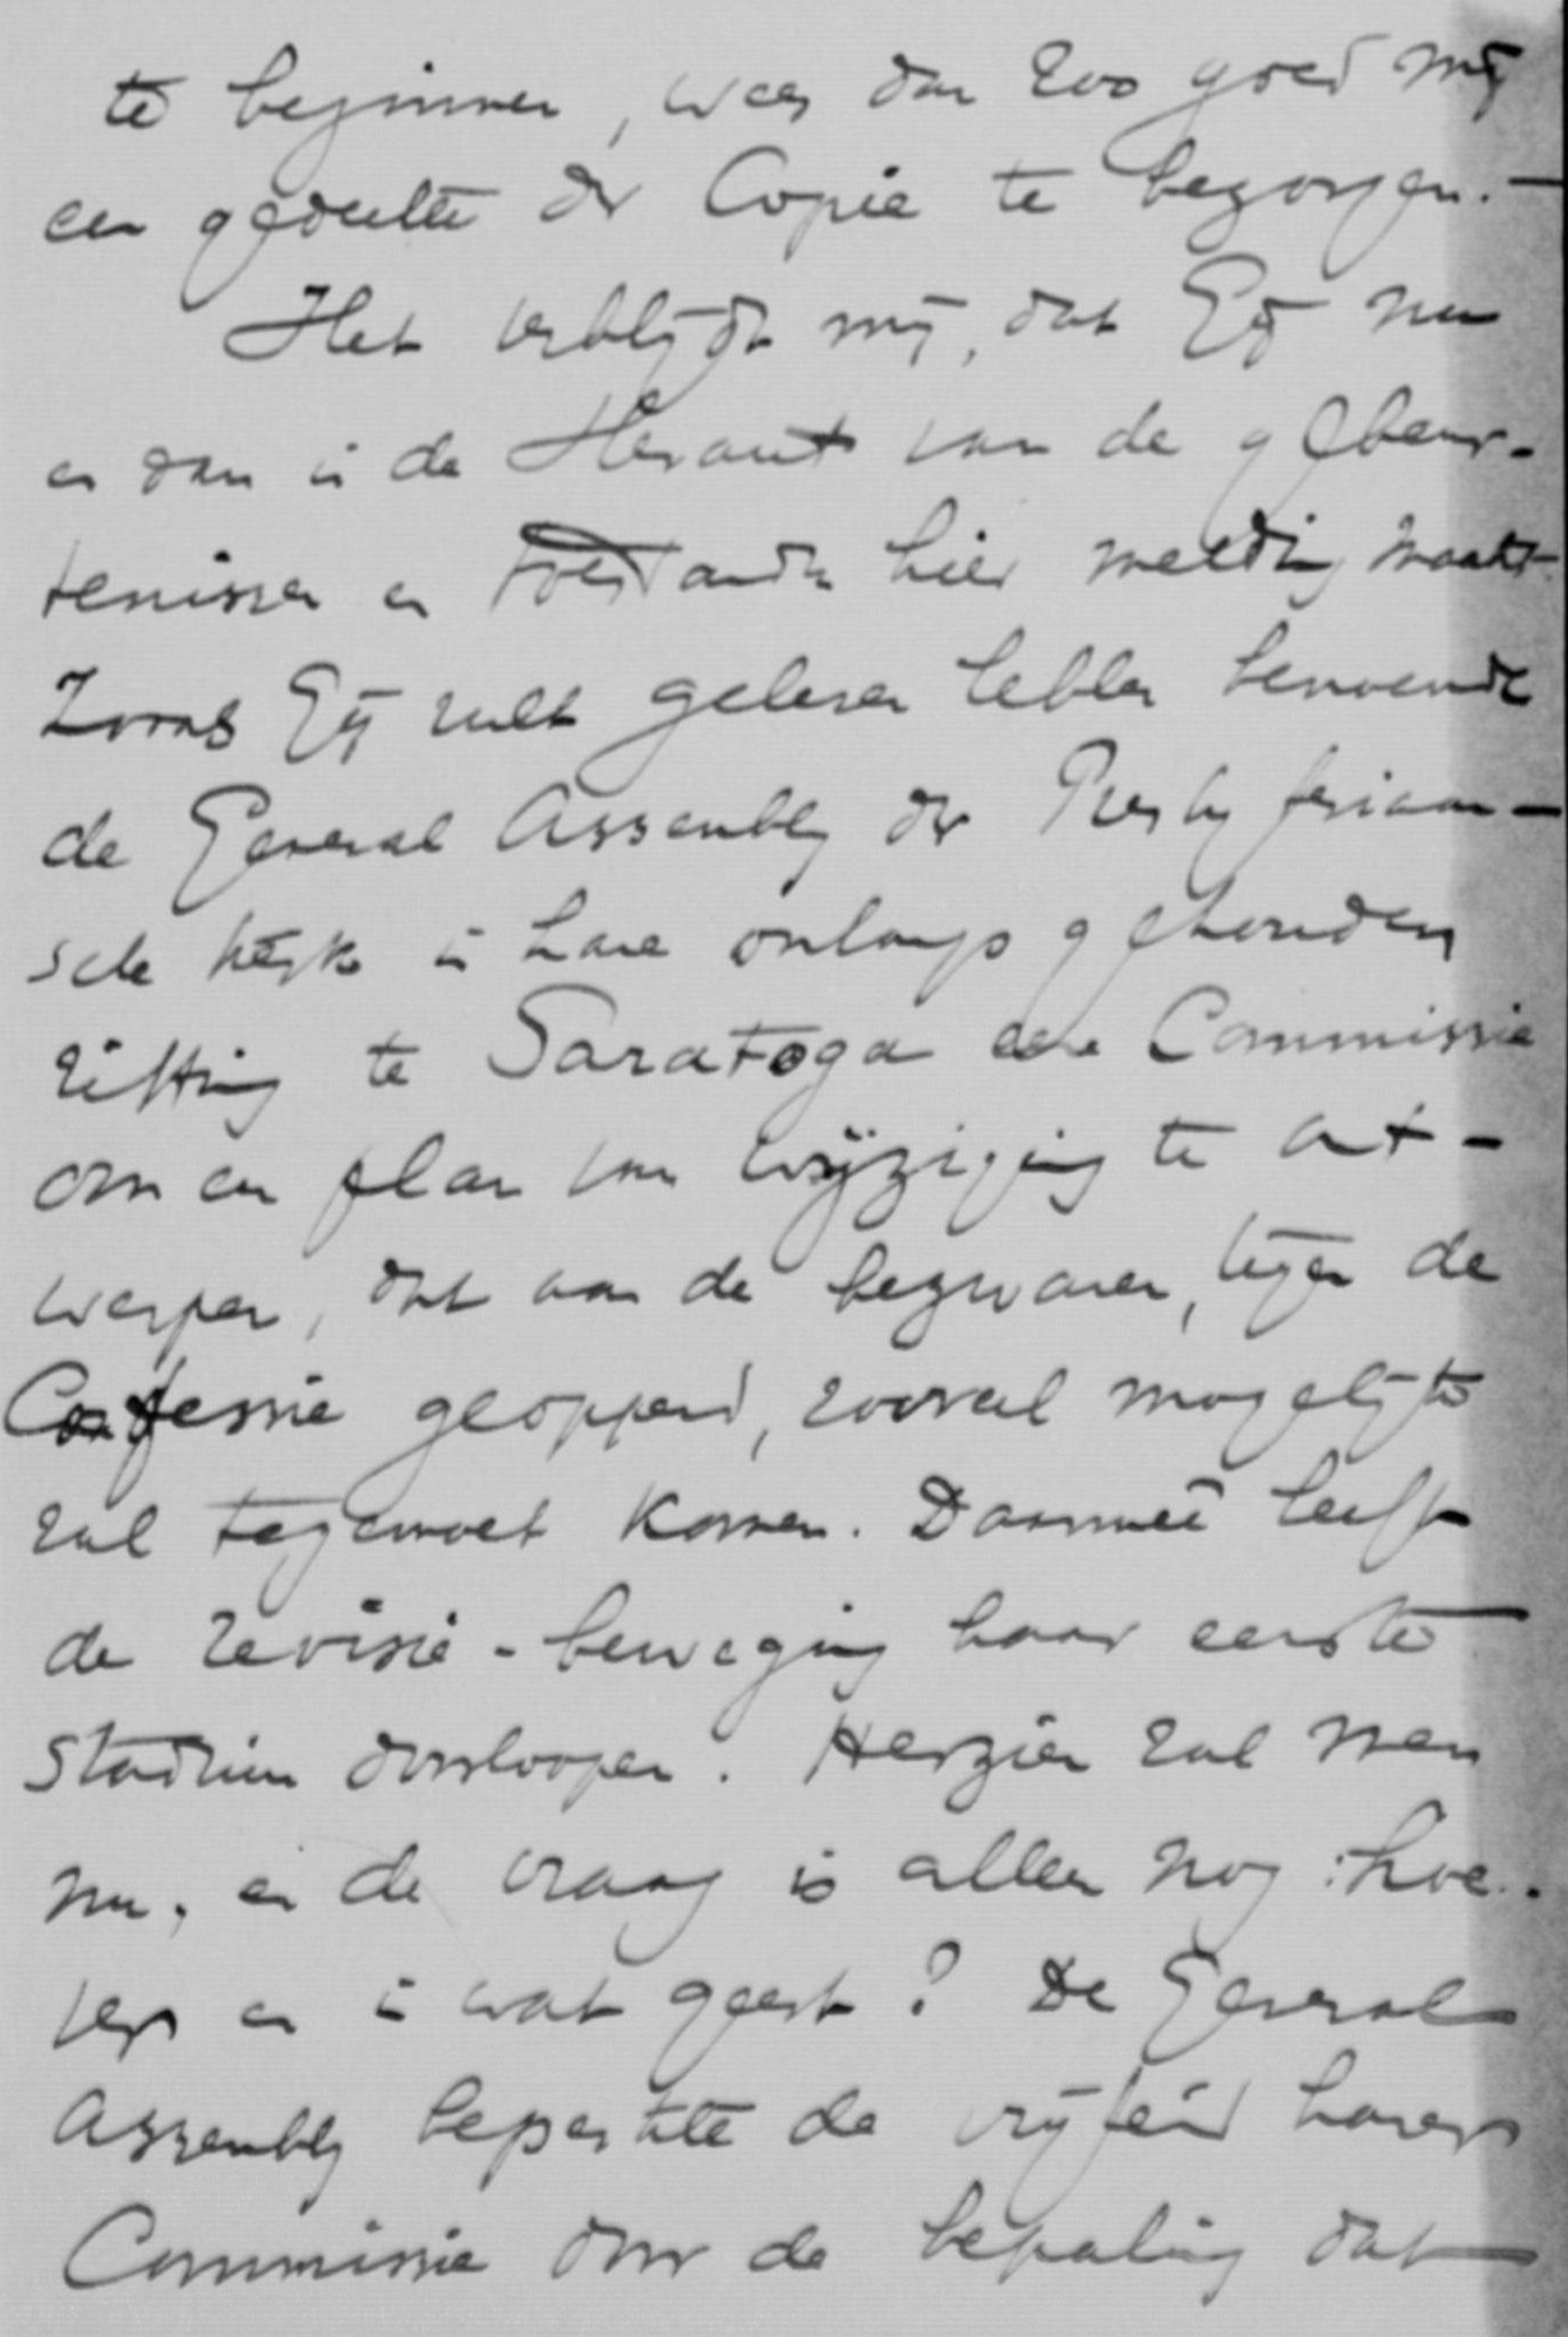 te beginnen, wees dan zoo goed mij
een gedeelte der Copie te bezorgen. —
Het verblijdt mij, dat Gij nu
en dan in de Heraut van de gebeur-
tenissen en toestanden hier melding maakt.
Zooals Gij zult gelezen hebben benoemde
de General Assembly der Presbyteriaan-
sche kerk in hare onlangs gehouden
zitting te Saratoga eene Commissie
om een plan van wijziging te ont-
werpen, dat aan de bezwaren, tegen de
Confessie geopperd, zooveel mogelijk
zal tegemoet komen. Daarmeê heeft
de revisie-beweging haar eerste
stadium doorloopen. Herzien zal men
nu, en de vraag is alleen nog: hoe-
ver en in wat geest? De General
Assembly beperkte de vrijheid harer
Commissie door de bepaling dat